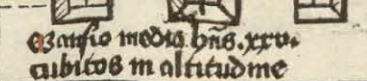 Mansio media hñs. xxv.
cubitos in altitudine